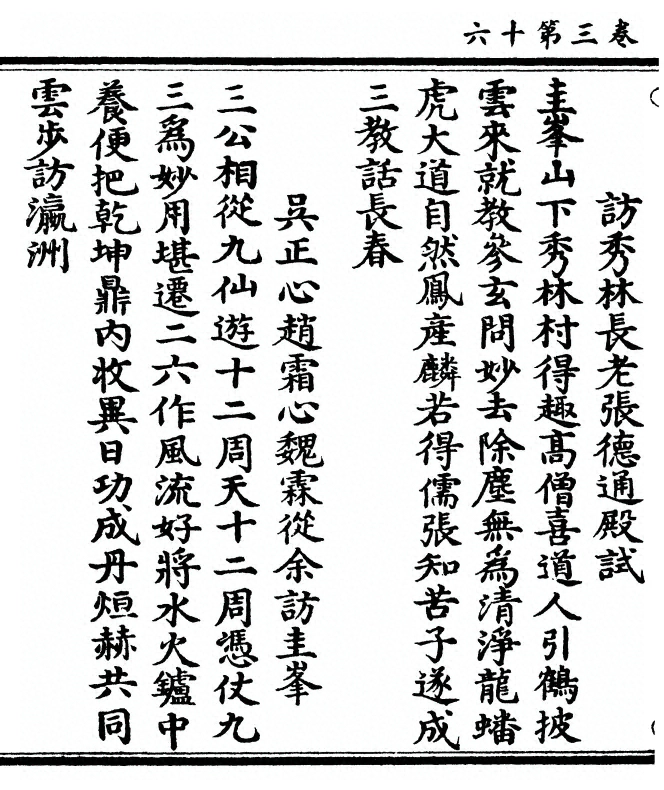 卷三第十六
訪秀林長老張德通殿試
圭峯山下秀林村得趣髙僧喜道人引鶴披
雲來就教參玄問妙去除塵無為清淨龍蟠
虎大道自然鳳產麟若得儒張知苦子遂成
三教話長春
吳正心趙霜心魏霖從余訪圭峯
三公相從九仙遊十二周天十二周憑仗九
三爲妙用堪遷二六作風流好將水火鑪中
養便把乾坤鼎内收異日功成丹烜赫共同
雲步訪瀛洲